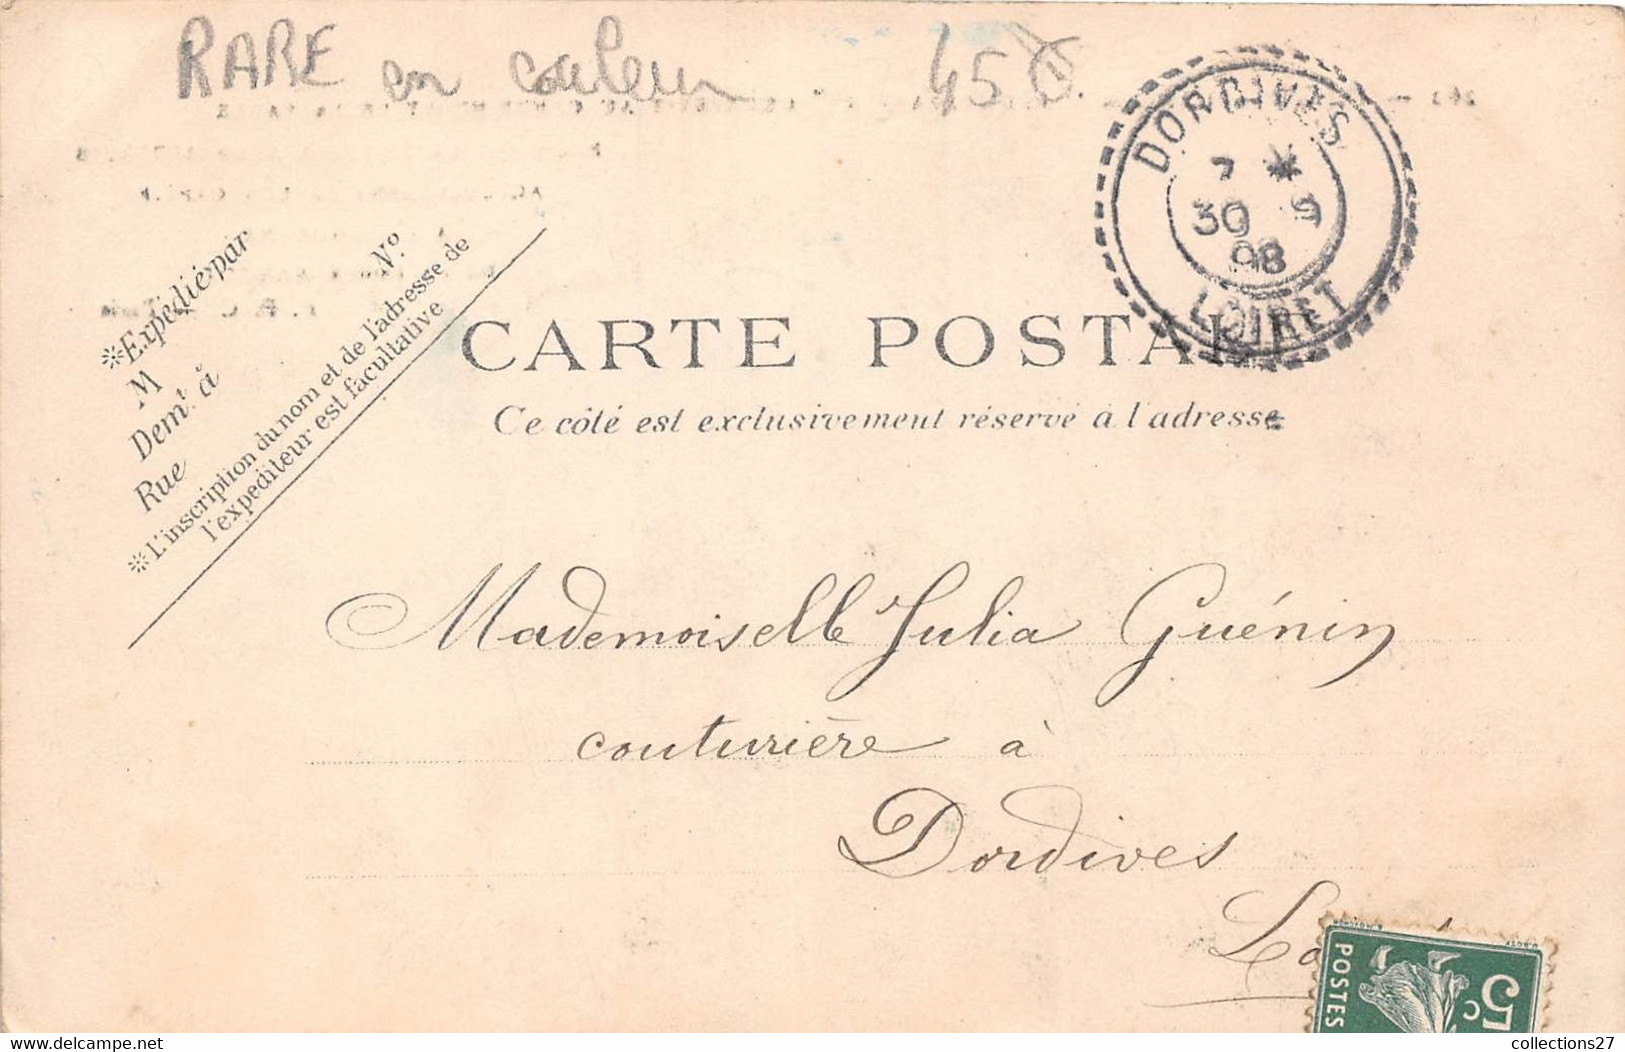 RARE en couleur 45
DORDIVES
7 *
30 9
08
LOIRET
*Expédié par
M
Demt à
Rue
N°
*L'inscription du nom et de l'adresse de
l'expéditeur est facultative
CARTE POSTALE
Ce côté est exclusivement réservé à l'adresse
Mademoiselle Julia Guénin
couturière à
Dordives
POSTES
5c
collections27